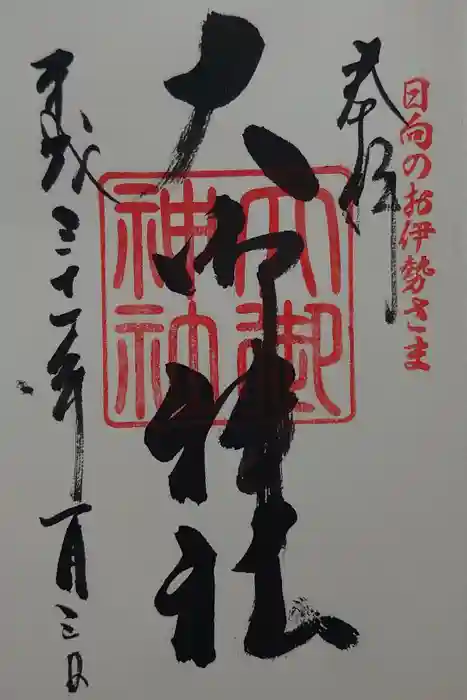 日向のお伊勢さま
奉拝
大御神社
大御神社
平成三十一年一月三日